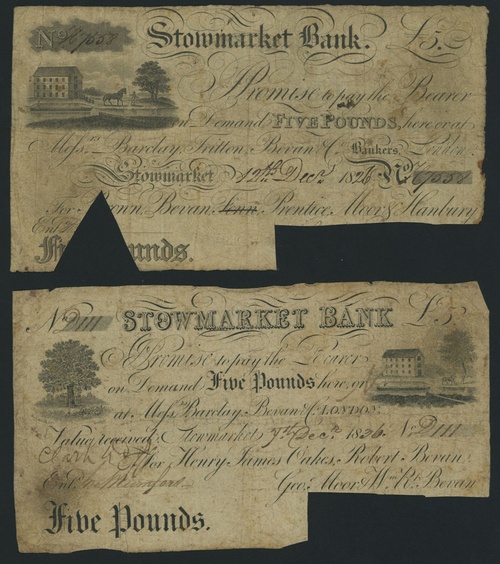 Stowmarket Bank. £5.
I Promise to pay the Bearer
on Demand FIVE POUNDS, here, or at
Mess.rs Barclay, Tritton, Bevan & Co. Bankers, London.
Stowmarket 12th Dec.r 1826 No
For Brown, Bevan, Prentice, Moor & Hanbury
Five Pounds.
No 2111 STOWMARKET BANK £5
I Promise to pay the Bearer
on Demand Five Pounds here, or
at Mess.rs Barclay, Bevan & Co. LONDON.
Value received; Stowmarket 7th Dec.r 1836. No 2111
For Henry James Oakes, Robert Bevan,
Ent.d
Geo. Moor & Wm. Rt. Bevan
Five Pounds.